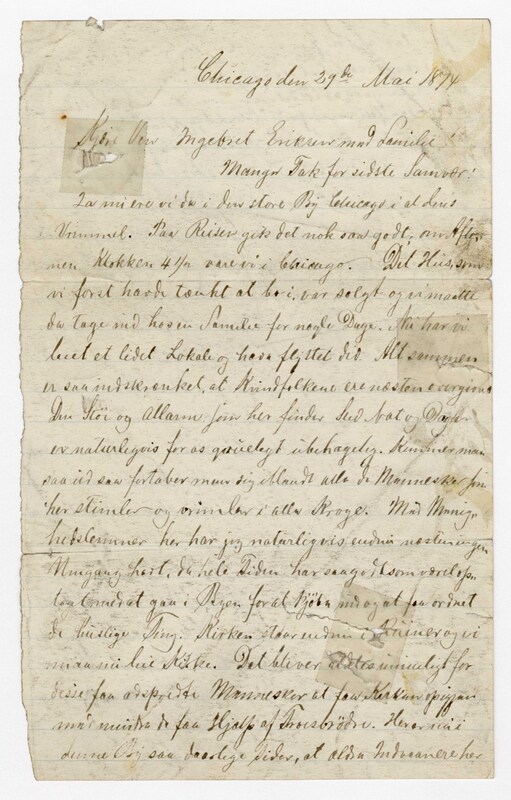 Chicago den 29de Mai 1874
Kjære Ven Ingebret Eriksen med Familie!
Mange Tak for sidste Samvær!
Ja nu ere vi da i den store By Chicago i al dens
Vrimmel. Paa Reisen gik det nok saa godt; om Afte-
nen Klokken 4½ vare vi i Chicago. Det Hus, som
vi først havde tænkt at bo i, var solgt og vi maatte
da tage ind hos en Familie for nogle Dage. Nu har vi
leiet et lidet Lokale og have flyttet did. Alt sammen
er saa indskrænket, at Kvindfolkene ere næsten overgivne
Den Støi og Allarm som her finder Sted Nat og Dag
er naturligvis for os grueligt ubehagelig. Kommer man
saa ud saa fortaber man sig iblandt alle de Mennesker som
her stimler og vrimler i alle Kroge. Med Menig-
hedslemmer her har jeg naturligvis endnu næsten ingen
Omgang havt, da hele Tiden har saa godt som været op-
taget med at gaa i Byen for at kjøbe ind og at faa ordnet
de huslige Ting. Kirken staar endnu i Ruiner og vi
maa nu leie Kirke. Det bliver umuligt for
disse faa adspredte Mennesker at faa Kirken
med mindre de faa Hjælp af Troesbrødre. Her er nu i
denne By saa daarlige Tider, at ældre Indvaanere her